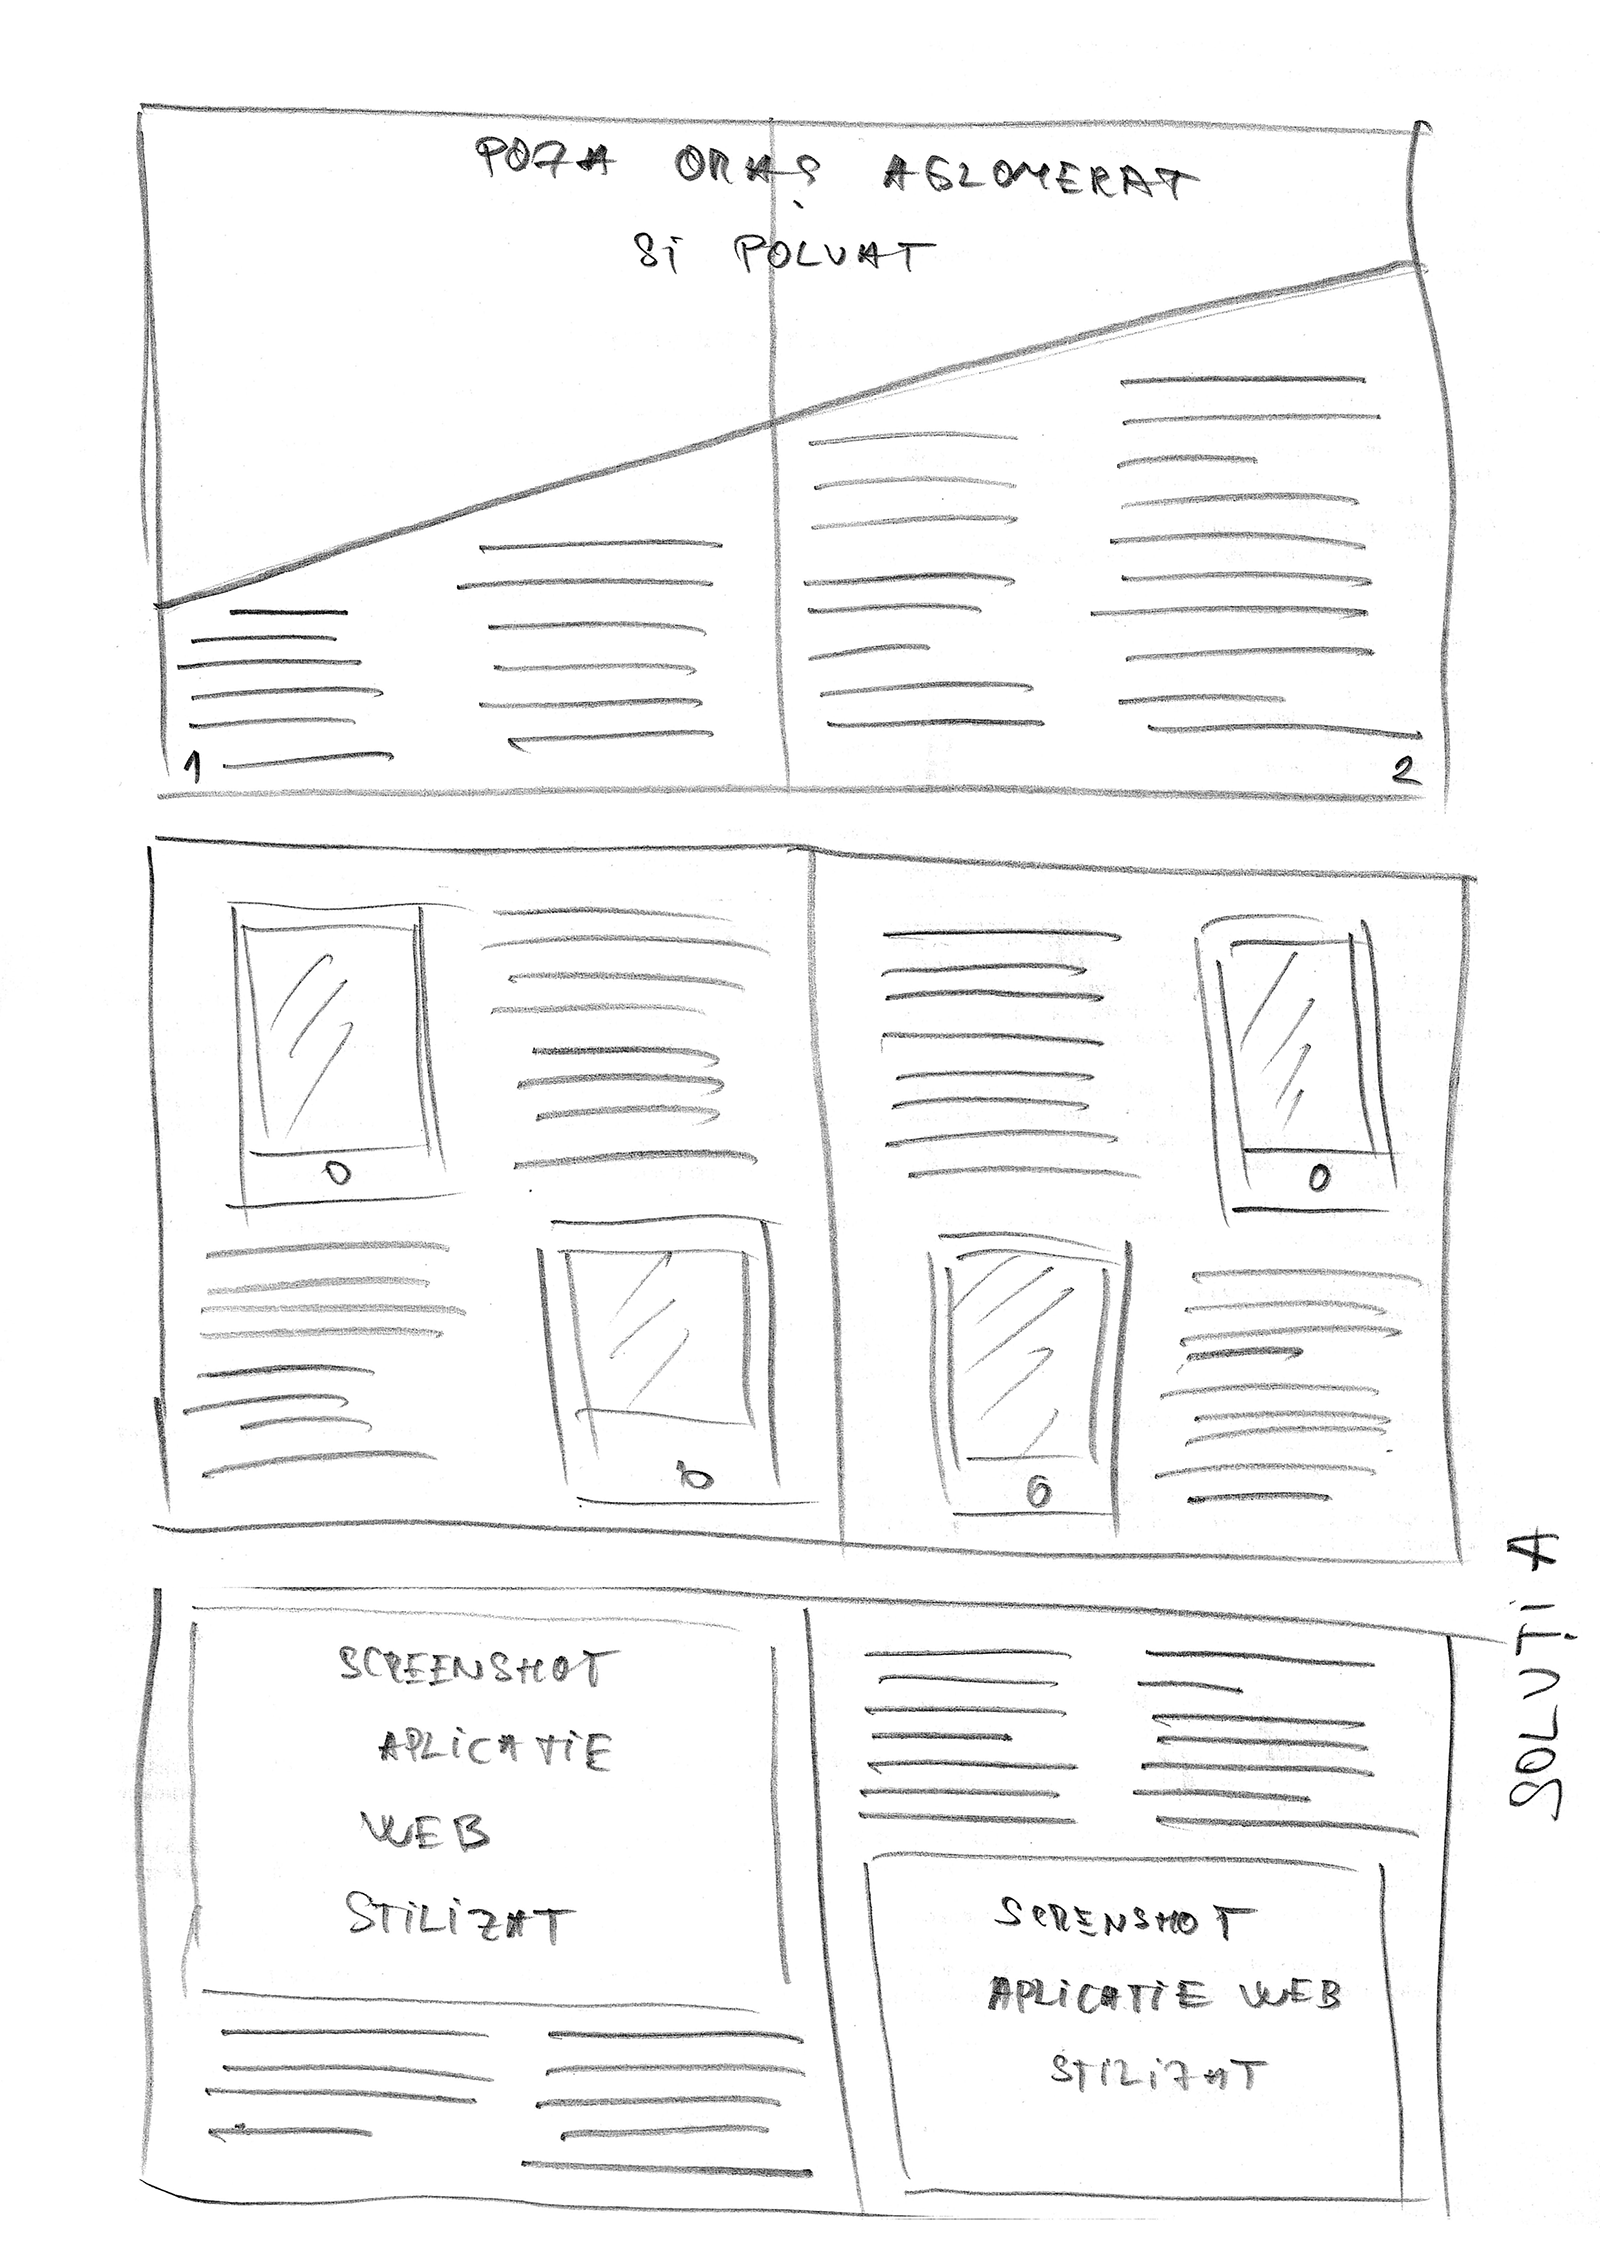 POZA ORAȘ AGLOMERAT
Si POLUAT
1
2
SCREENSHOT
APLiCATiE
WEB
STiLiZAT
SCRENSHOT
APLiCATiE WEB
STiLiZAT
SOLUȚiA